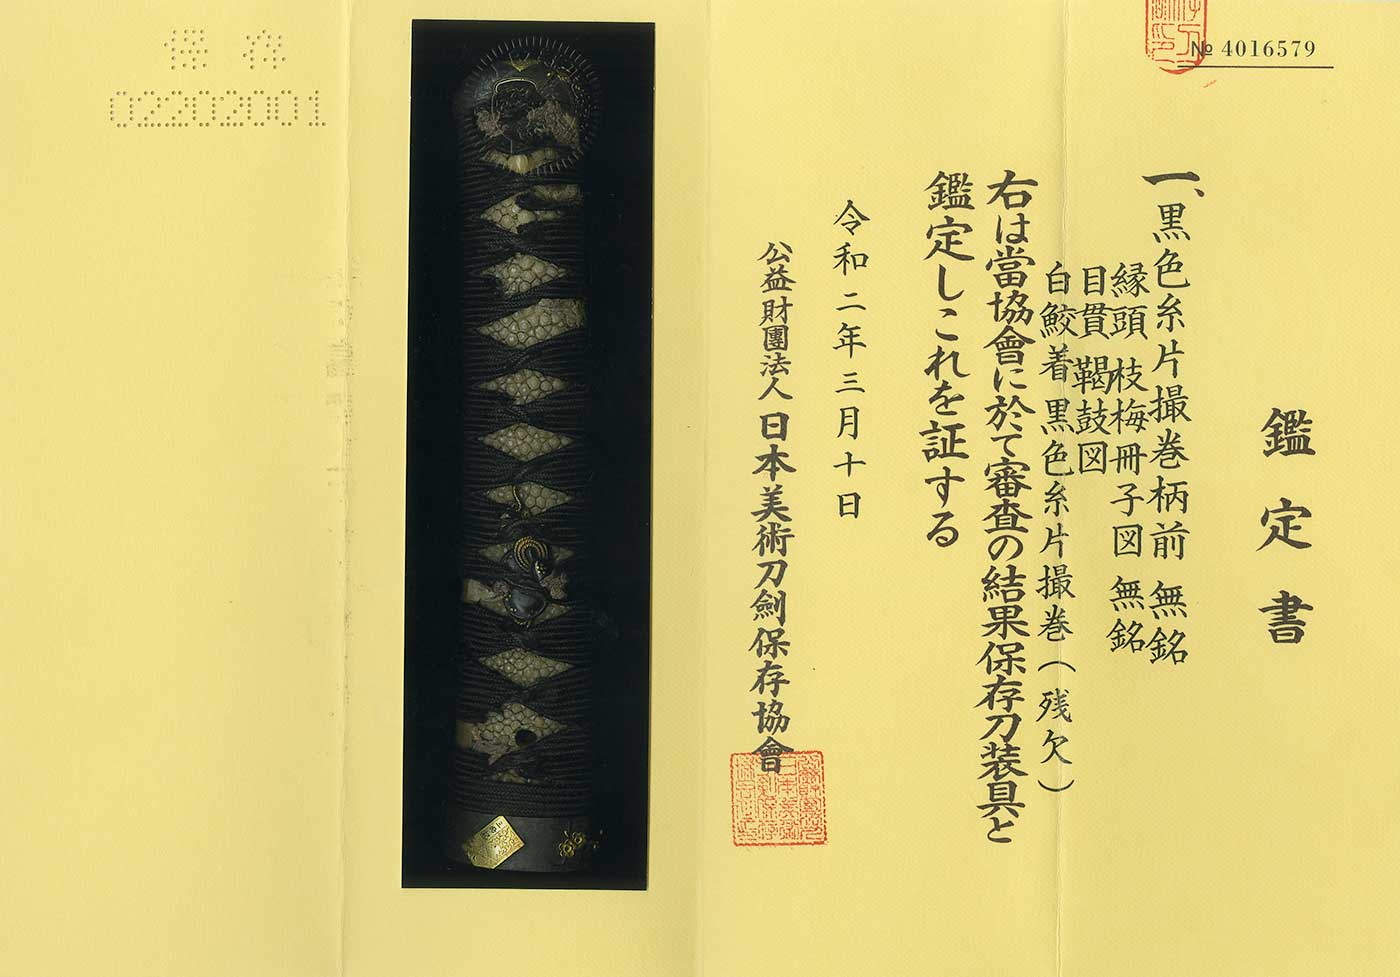 № 4016579
鑑定書
一、黒色糸片撮巻柄前 無銘
縁頭 枝梅冊子図 無銘
目貫 鞨鼓図
白鮫着黒色糸片撮巻(残欠)
右は當協會に於て審査の結果保存刀装具と
鑑定しこれを証する
令和二年三月十日
公益財團法人日本美術刀劍保存協會
保存
02202001